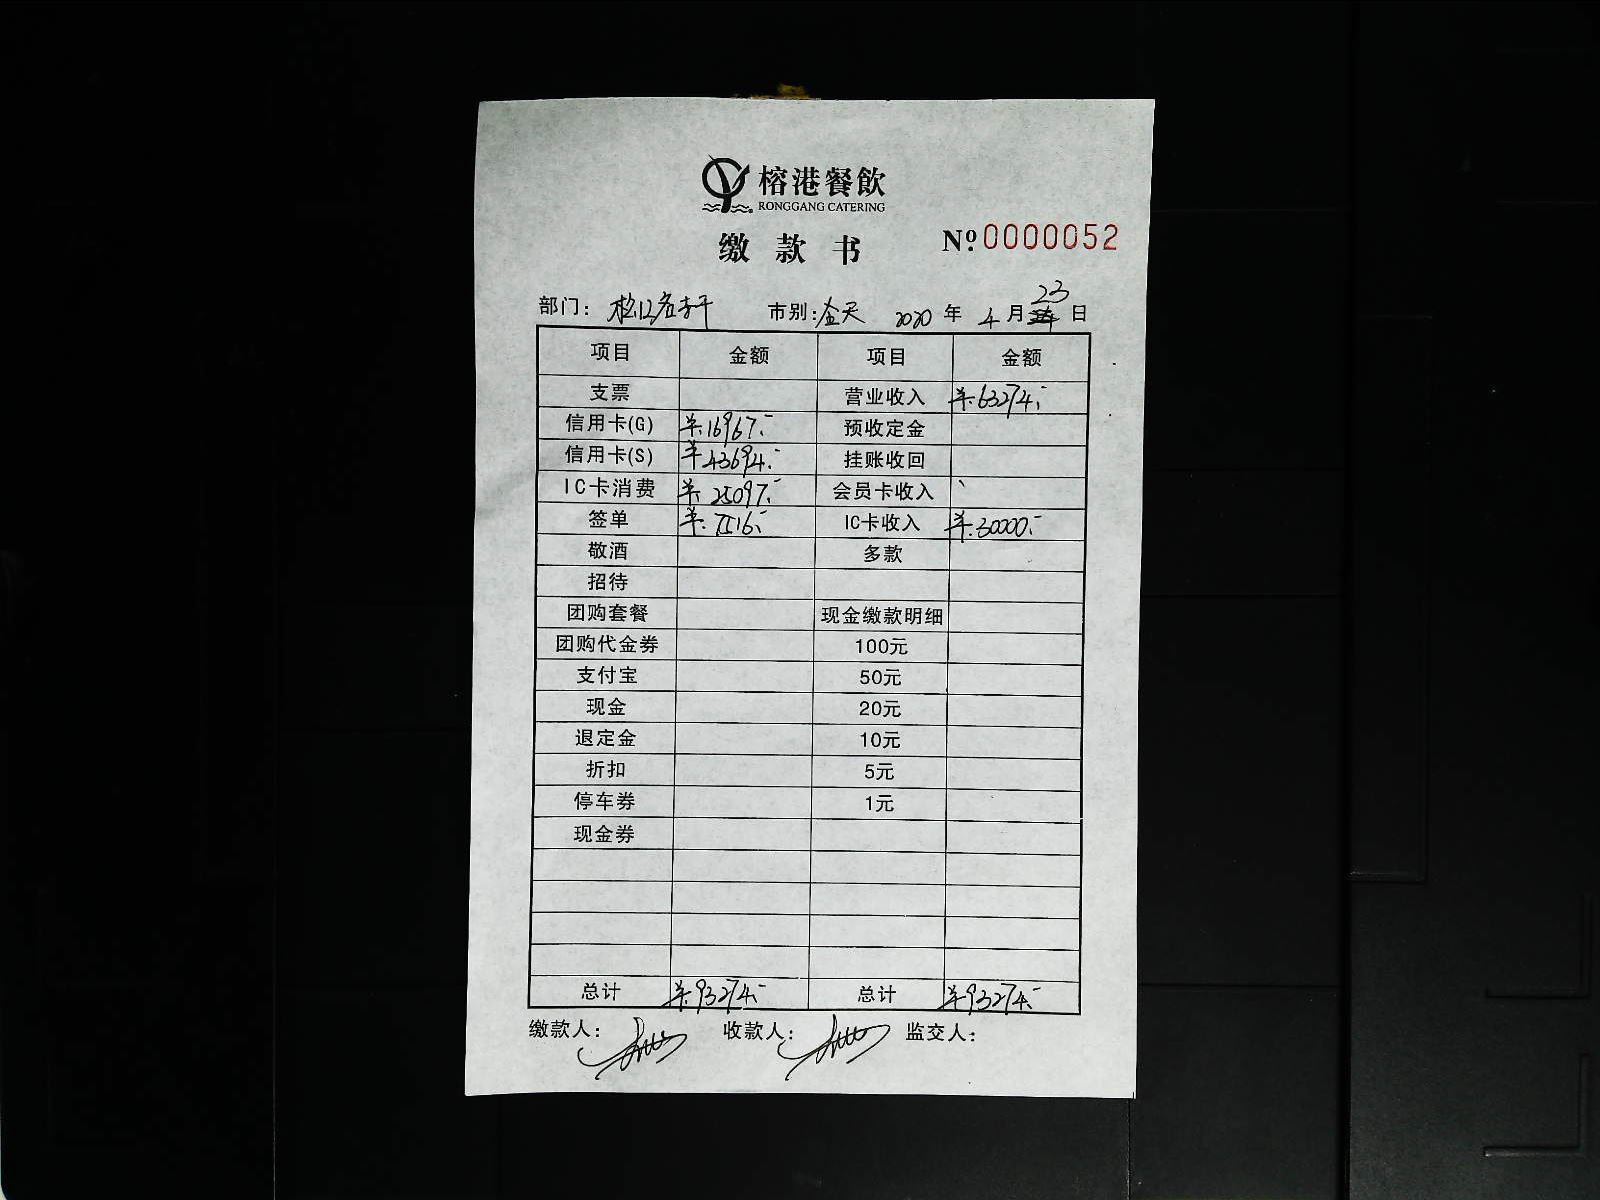 榕港餐飲
RONGGANG CATERING
缴款书
№ 0000052
部门: 市别: 全天 2020 年 4 月 23 日
项目 金额 项目 金额
支票 营业收入 ¥63274.-
信用卡(G) ¥16967.- 预收定金
信用卡(S) ¥43694.- 挂账收回
IC卡消费 ¥25097.- 会员卡收入
签单 ¥7516.- IC卡收入 ¥30000.-
敬酒 多款
招待
团购套餐 现金缴款明细
团购代金券 100元
支付宝 50元
现金 20元
退定金 10元
折扣 5元
停车券 1元
现金券
总计 ¥93274.- 总计 ¥93274.-
缴款人: 收款人: 监交人: